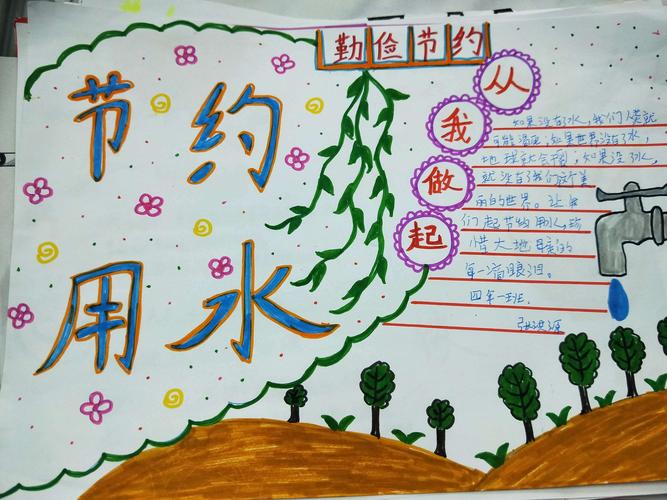 节约
用水
勤俭节约
从
我
做
起
如果没有了水,我们人类就
可能渴死;如果世界没有了水,
地球就会 ;如果没了水,
就没有了我们这个美
丽的世界。让我
们一起节约用水,珍
惜大地母亲的
每一滴眼泪。
四年一班
张洪源